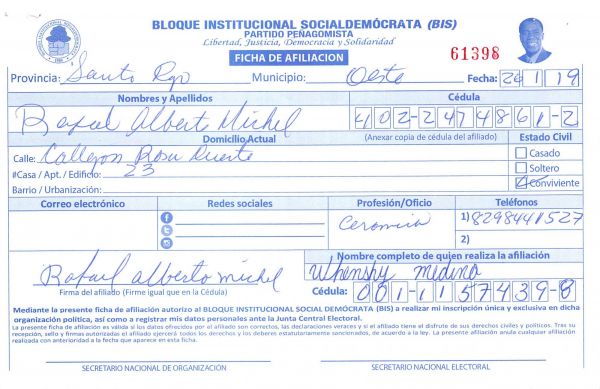 BLOQUE INSTITUCIONAL SOCIALDEMÓCRATA (BIS)
PARTIDO PEÑAGOMISTA
Libertad, Justicia, Democracia y Solidaridad
FICHA DE AFILIACION
61398
Provincia: Santo Dgo Municipio: Oeste Fecha: 26 1 19
Nombres y Apellidos Cédula
Rafael Alberto Michel 402-2474861-2
Domicilio Actual (Anexar copia de cédula del afiliado) Estado Civil
Calle: Callejon Rosa Duarte Casado
#Casa / Apt. / Edificio: 23 Soltero
Barrio / Urbanización: Conviviente
Correo electrónico Redes sociales Profesión/Oficio Teléfonos
Ceromica 1) 8298441527
2)
Nombre completo de quien realiza la afiliación
Rafael alberto michel Whensky medina
Firma del afiliado (Firme igual que en la Cédula) Cédula: 001-1157439-8
Mediante la presente ficha de afiliación autorizo al BLOQUE INSTITUCIONAL SOCIAL DEMÓCRATA (BIS) a realizar mi inscripción única y exclusiva en dicha
organización política, así como a registrar mis datos personales ante la Junta Central Electoral.
La presente ficha de afiliación es válida si los datos ofrecidos por el afiliado son correctos, las declaraciones veraces y si el afiliado tiene el disfrute de sus derechos civiles y políticos. Tras su
recepción, sello y firmas autorizadas el afiliado ejercerá todos los derechos y los deberes estatutariamente sancionados, de acuerdo a la ley. La presente afiliación anula cualquier afiliación
realizada con anterioridad a la fecha que aparece en esta ficha.
SECRETARIO NACIONAL DE ORGANIZACIÓN SECRETARIO NACIONAL ELECTORAL